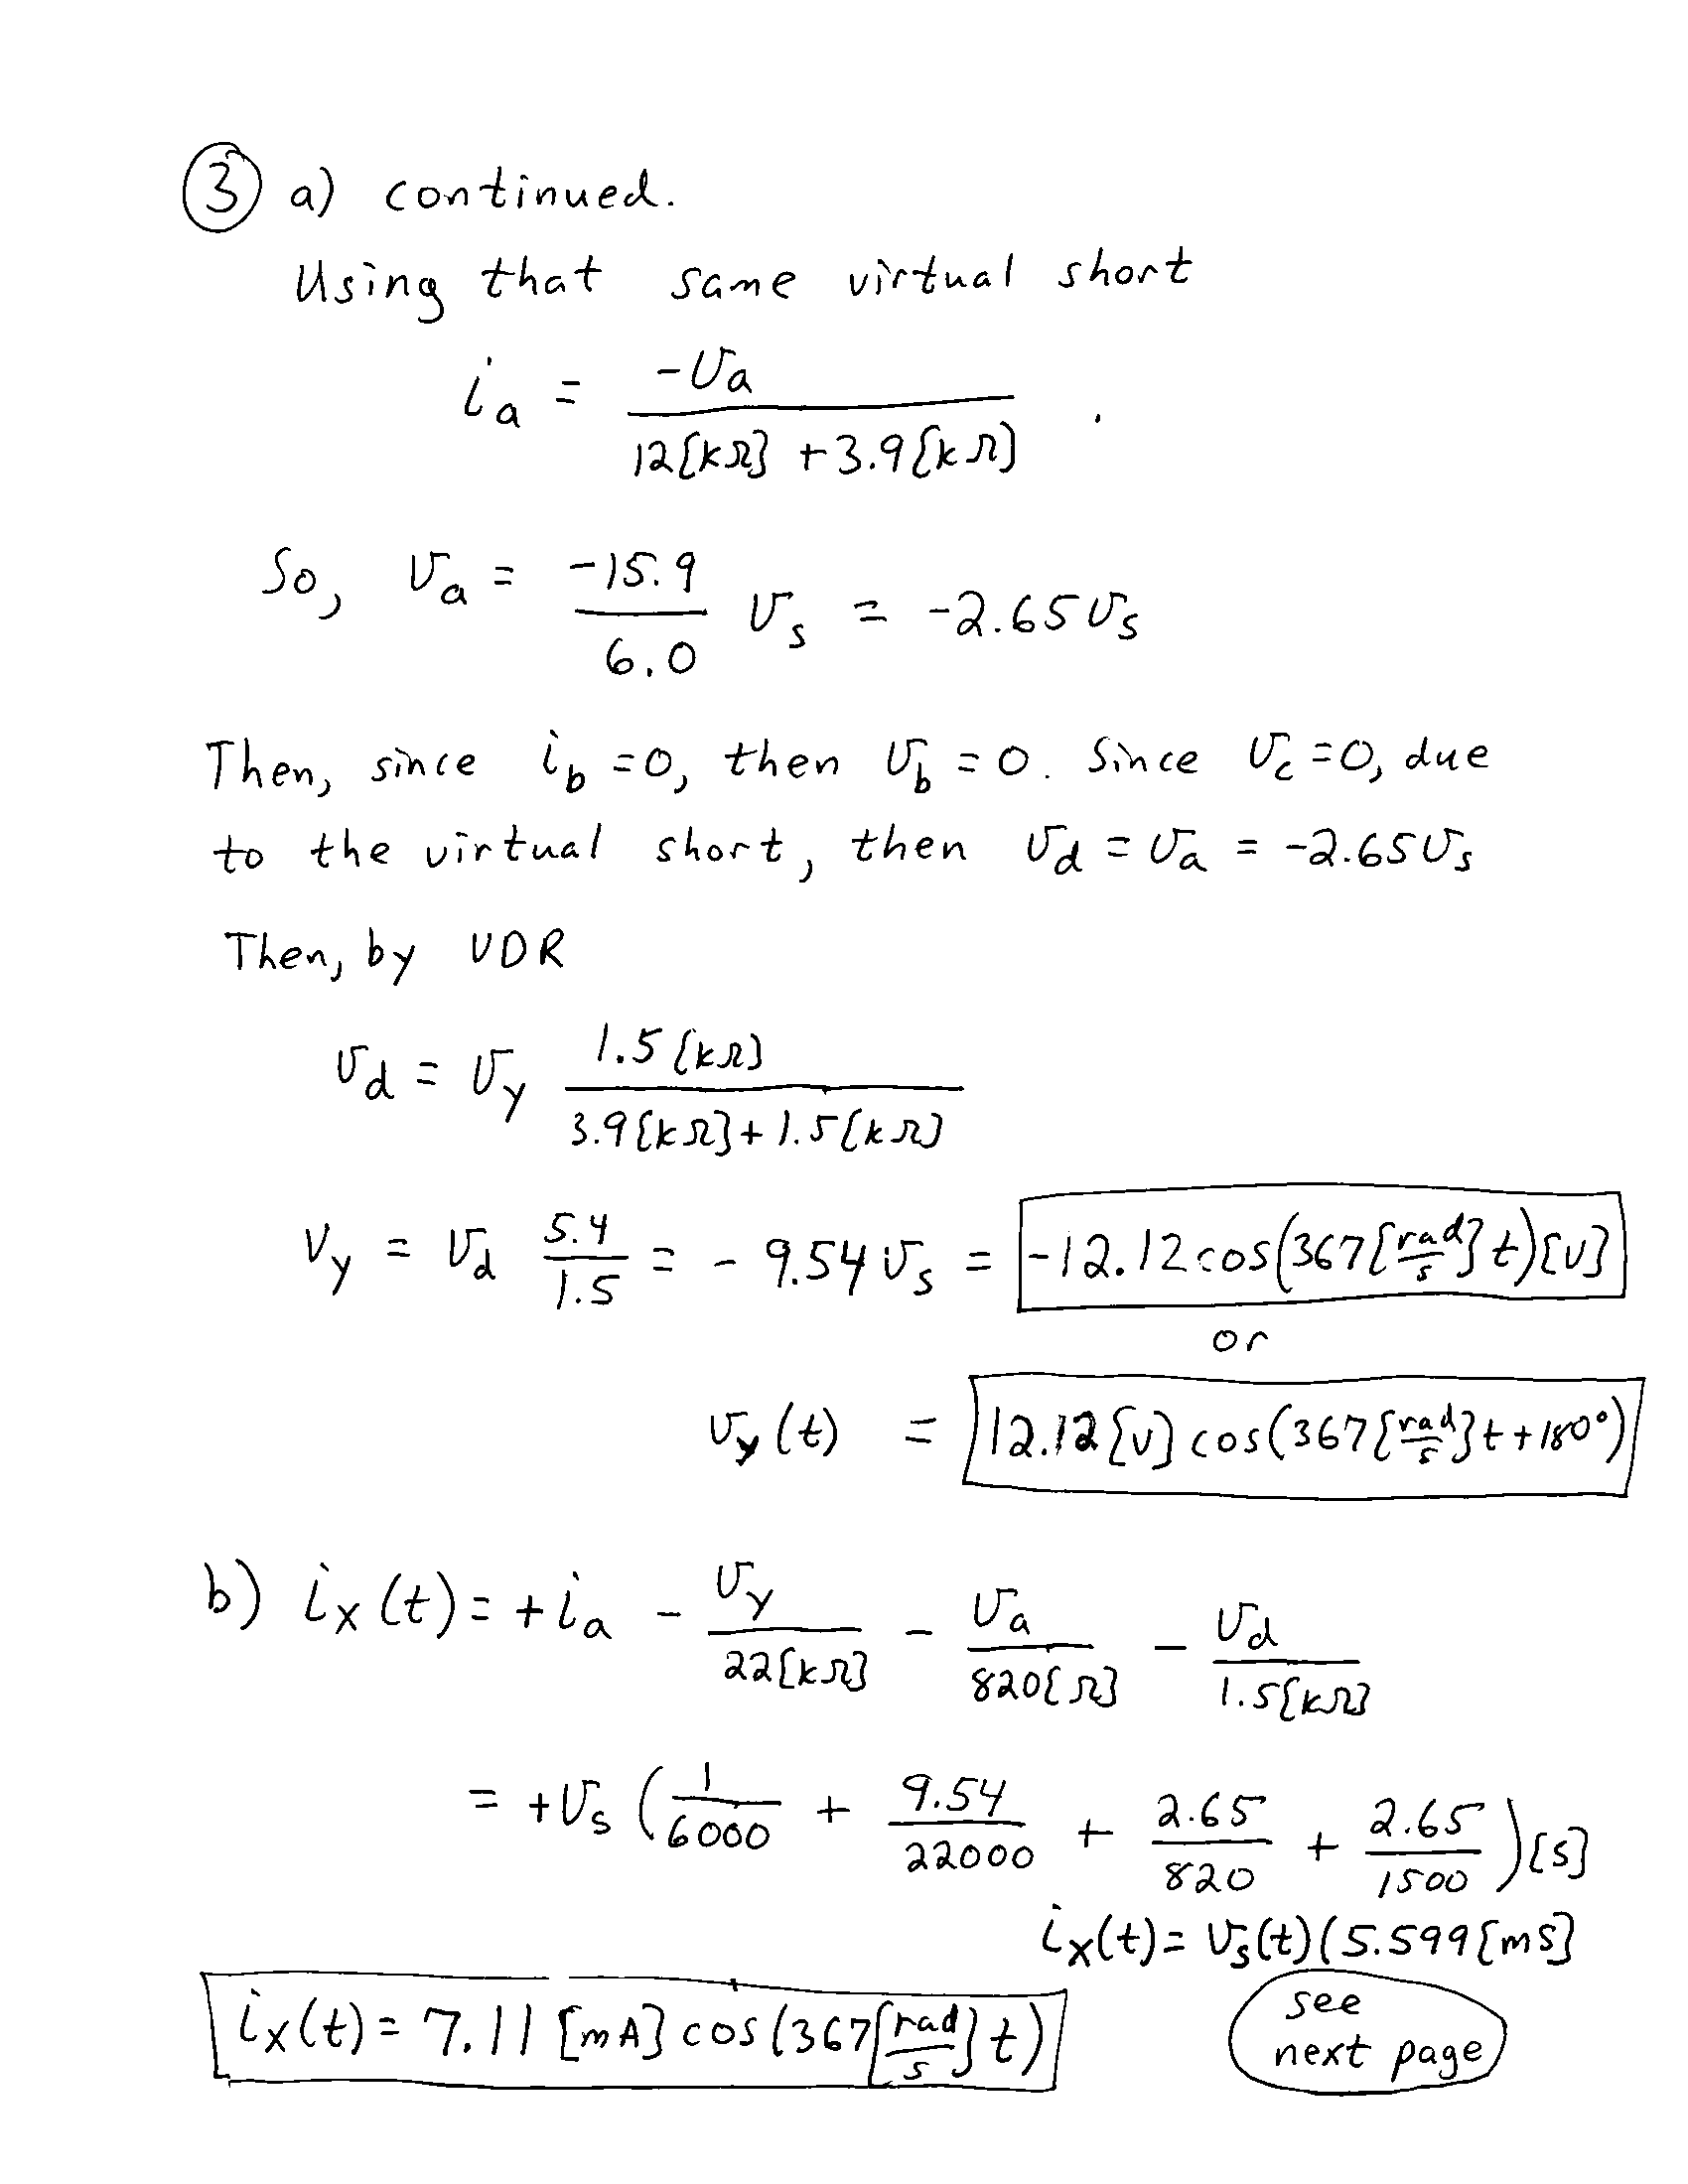 ③ a) continued.
Using that same virtual short
i_a = -v_a / (12[kΩ] + 3.9[kΩ]) .
So, v_a = -15.9/6.0 v_s = -2.65 v_s
Then, since i_b = 0, then v_b = 0. Since v_c = 0, due
to the virtual short, then v_d = v_a = -2.65 v_s
Then, by VDR
v_d = v_y 1.5[kΩ] / (3.9[kΩ] + 1.5[kΩ])
v_y = v_d 5.4/1.5 = -9.54 v_s = -12.12 cos(367[rad/s] t)[V]
or
v_y(t) = 12.12[V] cos(367[rad/s] t + 180°)
b) i_x(t) = +i_a - v_y/22[kΩ] - v_a/820[Ω] - v_d/1.5[kΩ]
= +v_s (1/6000 + 9.54/22000 + 2.65/820 + 2.65/1500)[S]
i_x(t) = v_s(t)(5.599[mS]
i_x(t) = 7.11 [mA] cos(367[rad/s] t)
see
next page